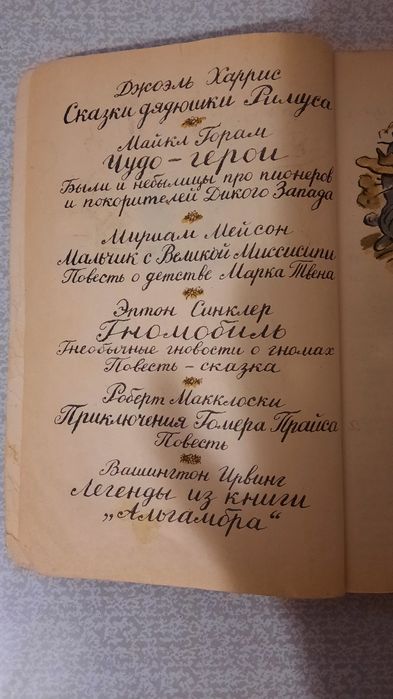 Джоэль Харрис
Сказки дядюшки Римуса
Майкл Горам
Чудо-герои
Были и небылицы про пионеров
и покорителей Дикого Запада
Мириам Мейсон
Мальчик с Великой Миссисипи
Повесть о детстве Марка Твена
Эптон Синклер
Гномобиль
Гнеобычные гновости о гномах
Повесть-сказка
Роберт Макклоски
Приключения Гомера Прайса
Повесть
Вашингтон Ирвинг
Легенды из книги
„Альгамбра“